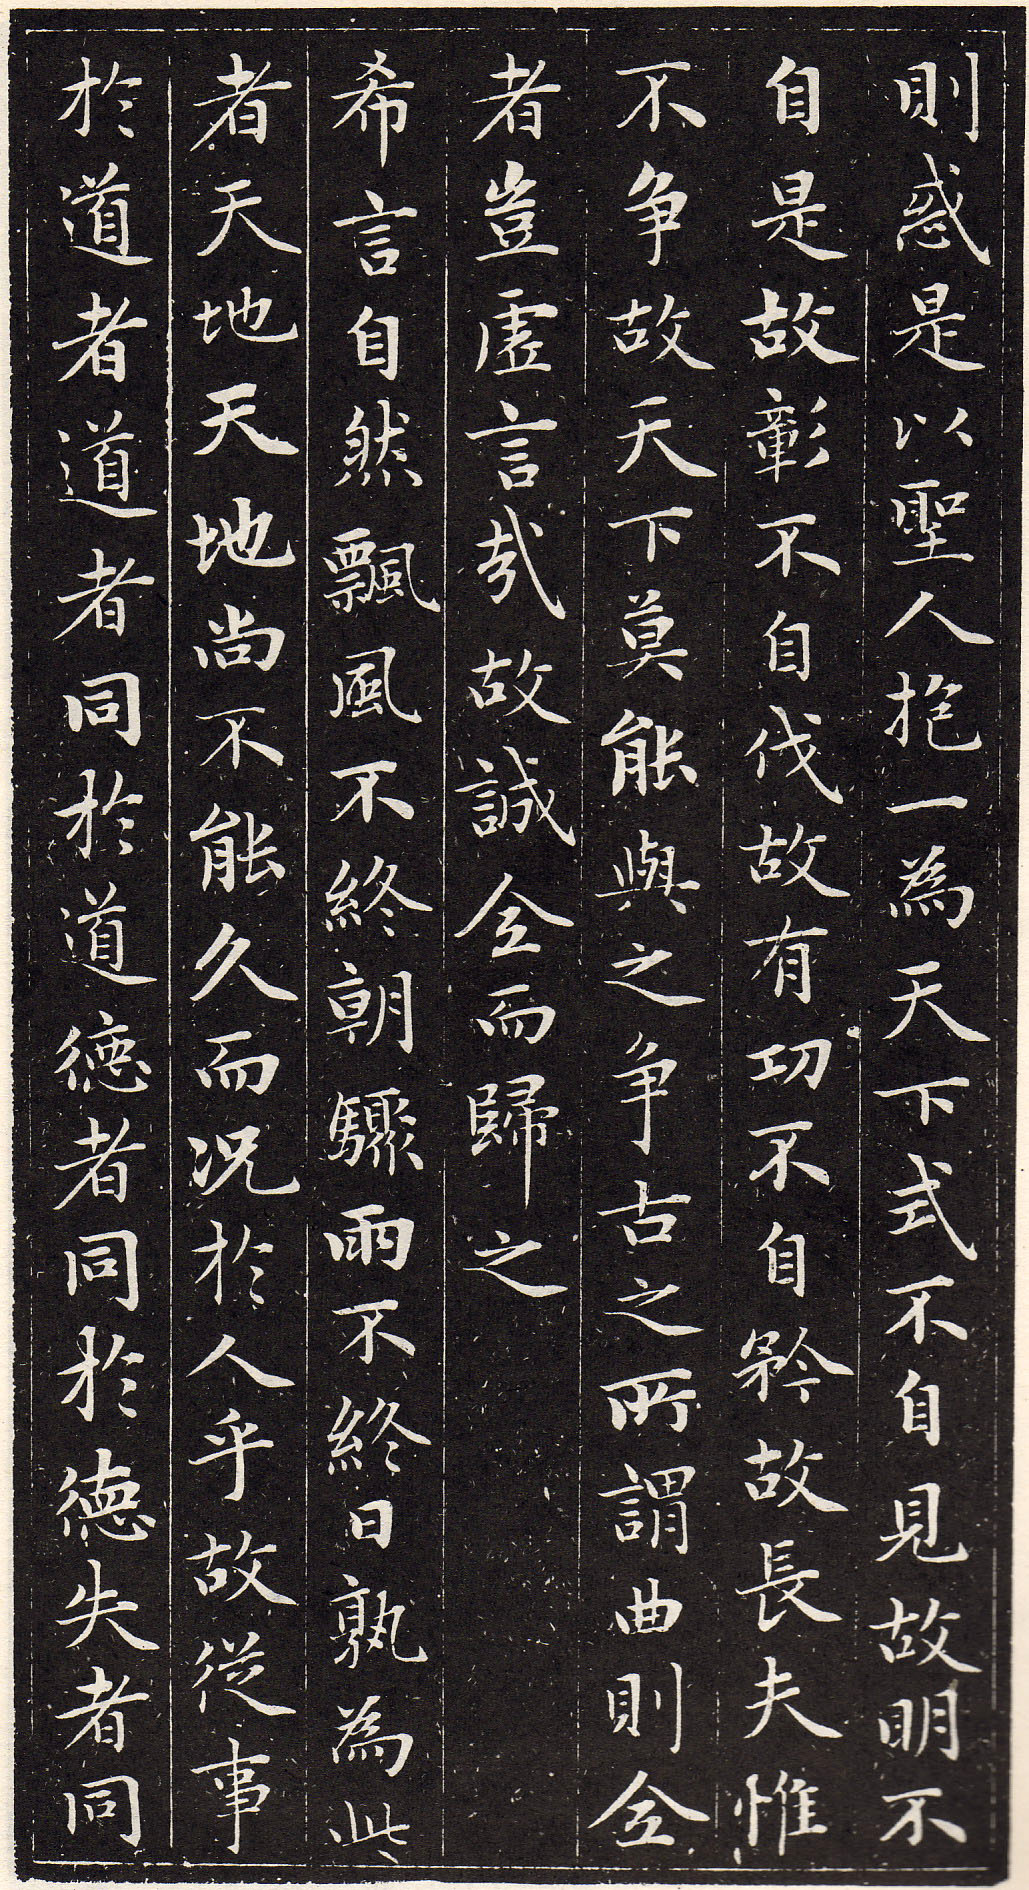 則惑是以聖人抱一為天下式不自見故明不
自是故彰不自伐故有功不自矜故長夫惟
不爭故天下莫能與之爭古之所謂曲則全
者豈虛言哉故誠全而歸之
希言自然飄風不終朝驟雨不終日孰為此
者天地天地尚不能久而況於人乎故從事
於道者道者同於道德者同於德失者同